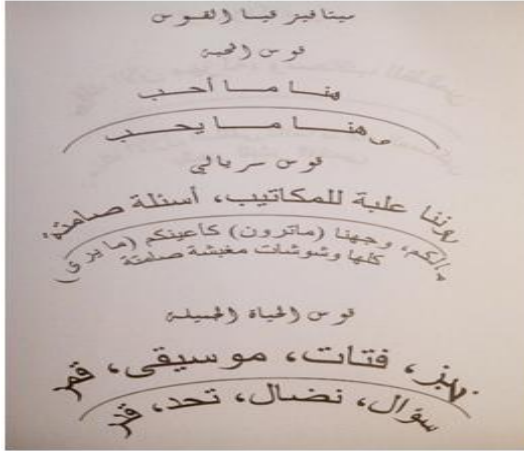 ميتافيزيقيا القوس
قوس المحبة
هنا ما أحب
وهنا ما يحب
قوس سريالي
بيوتنا علبة للمكاتيب، أسئلة صامتة
مالكم، وجهنا (ماترون) كأعينكم (ما يرى)
كلها وشوشات مغبشة صامتة
قوس الحياة الجميلة
خبز، فتات، موسيقى، قمر
سؤال، نضال، تحد، قدر